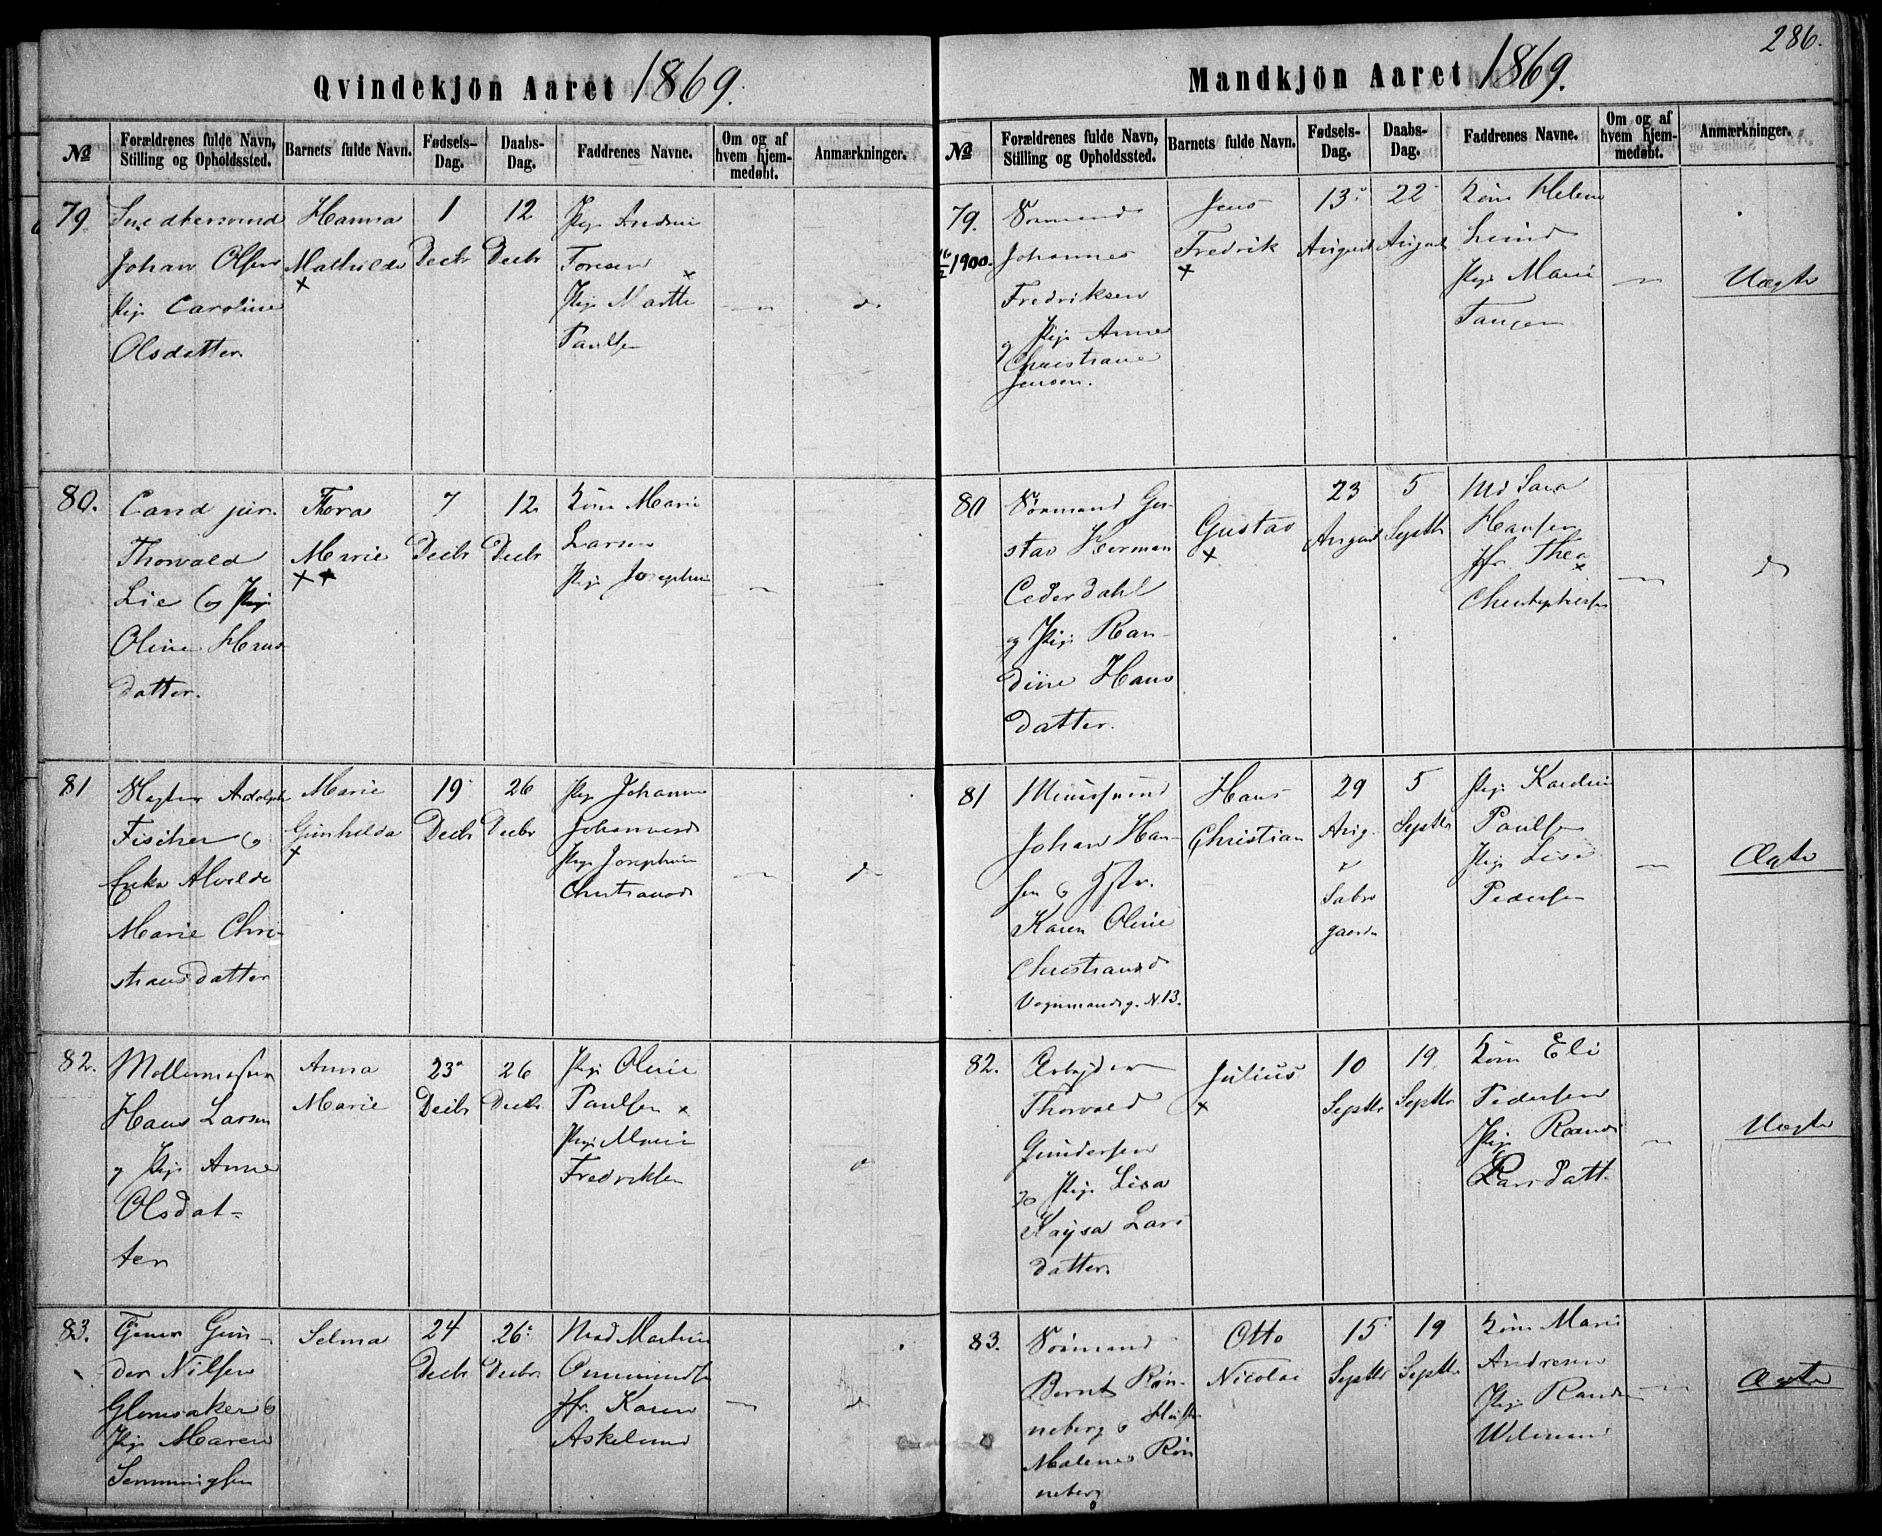 286.
Qvindekjön Aaret 1869.
№
Forældrenes fulde Navn, Stilling og Opholdssted.
Barnets fulde Navn.
Fødsels-Dag.
Daabs-Dag.
Faddrenes Navne.
Om og af hvem hjem-medøbt.
Anmærkninger.
79.
Snedkersvend
Johan Olsen
Pige Caroline
Olsdatter
Hanna
Mathilde
×
1
Decbr
12
Decbr
Pige Andrine
Foresen
×
Pige Marthe
Paulsen
—
do
80.
Cand jur.
Thorvald
Lie og Pige
Oline Hans
datter.
Thora
Marie
××
7
Decbr
12
Decbr
Kone Marie
Larsen
Pige Josephine
—
81
Adolph
Fischer og
Erika Alvilde
Marie Chri-
stiansdatter
Marie
Gunhilda
×
19
Decbr
26
Decbr
Pige Johanne
Johannesd
Pige Josephine
Christiansd
—
do
82.
Hans Larsen
og Pige Anne
Olsdat-
ter
Anna
Marie
23
Decbr
26
Decbr
Pige Oline
Paulsen ×
Pige Marie
Fredriksen
83.
Tjener Gun-
der Nilsen
Glomsaker og
Pige Maren
Semmingsen
Selma
24
Decbr
26
Decbr
Mad Martine
Ommundsen
Jfr. Karen
Askelund
—
do
Mandkjön Aaret 1869.
№
Forældrenes fulde Navn, Stilling og Opholdssted.
Barnets fulde Navn.
Fødsels-Dag.
Daabs-Dag.
Faddrenes Navne.
Om og af hvem hjem-medøbt.
Anmærkninger.
79.
16/2 1900.
Sømand
Johannes
Fredriksen
og Pige Anne
Christiane
Jensen.
Jens
Fredrik
×
13
August
22
August
Kone Helene
Lund
Pige Marie
Tangen
—
Uægte
80
Sømand Gu-
stav Herman
Cederdahl
og Pige Ran-
dine Hans
datter.
Gustav
×
23
August
5
Septbr
Md Sara
Hansen
Jfr. Thea
×
Christophersen
—
do
81
Muursvend
Johan Han-
sen og Hstr.
Karen Oline
Christiansd
Vognmandsg. N. 13.
Hans
Christian
29
Aug.
5
Septbr
Pige Karoline
Paulsen
Pige Lise
Pedersen
—
Ægte
82.
Arbejder
Thorvald
Gundersen
og Pige Lisa
Kaysa Lars
datter.
Julius
×
10
Septbr
19
Septbr
Kone Eli
Pedersen
Pige Randi
Larsdatt.
—
Uægte
83.
Sømand
Bernt Røn-
neberg og Hustr
Malene Røn
neberg
Otto
Nicolai
15
Septbr
19
Septbr
Kone Marie
Andresen
Pige Randi
—
Ægte